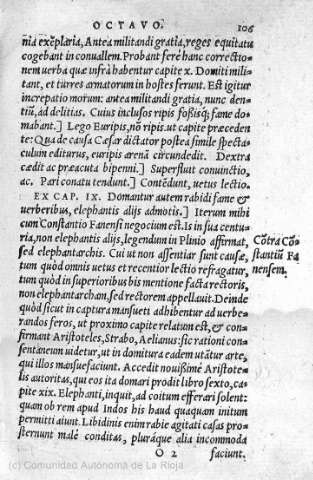 OCTAVO. 106
n̄ia exẽplaria, Antea militandi gratia, reges equitatu
cogebant in conuallem. Probant ferè hanc correctio-
nem uerba quæ infrà habentur capite x. Domiti mili-
tant, et turres armatorum in hostes ferunt. Est igitur
increpatio morum: antea militandi gratia, nunc den-
tiũ, ad delitias. Cuius inclusos ripis fossisq; fame do-
mabant.] Lego Euripis, nõ ripis. ut capite præceden-
te: Qua de causa Cæsar dictator postea simile specta-
culum editurus, euripis arenã circundedit. Dextra
cædit ac præacuta bipenni.] Superfluit coniunctio,
ac. Pari conatu tendunt.] Contẽdunt, uetus lectio.
EX CAP. IX. Domantur autem rabidi fame &
uerberibus, elephantis alijs admotis.] Iterum mihi
cum Constantio Fanensi negocium est. Is in sua centu-
ria, non elephantis alijs, legendum in Plinio affirmat,
sed elephantarchis. Cui ut non assentiar sunt causæ,
Cõtra Cõ-
stantiũ Fa
nensem.
tum quòd omnis uetus et recentior lectio refragatur,
tum quòd in superioribus bis mentione facta rectoris,
non elephantarcham, sed rectorem appellauit. Deinde
quòd sicut in captura mansueti adhibentur ad uerbe-
randos feros, ut proximo capite relatum est, & con-
firmant Aristoteles, Strabo, Aelianus: sic rationi con-
sentaneum uidetur, ut in domitura eadem utãtur arte,
qui illos mansuefaciunt. Accedit nouißimè Aristote-
lis autoritas, qui eos ita domari prodit libro sexto, ca-
pite xix. Elephanti, inquit, ad coitum efferari solent:
quam ob rem apud Indos his haud quaquam initum
permitti aiunt. Libidinis enim rabie agitati casas pro-
sternunt malè conditas, pluráque alia incommoda
O 2 faciunt.
(c) Comunidad Autónoma de La Rioja